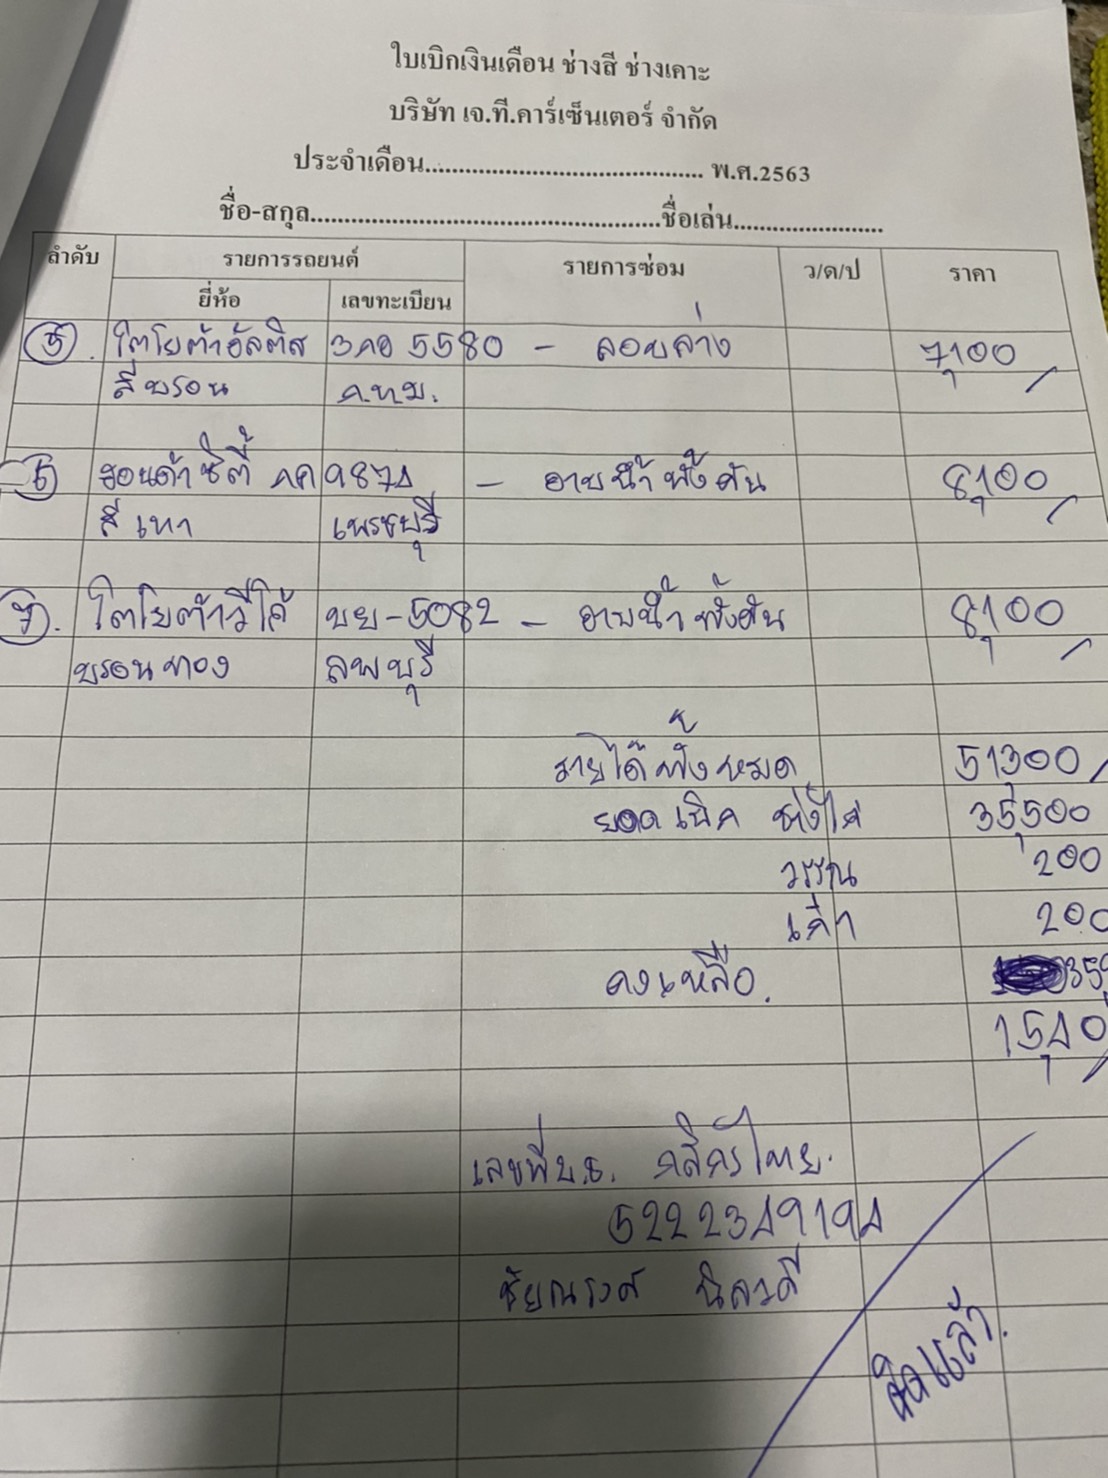 ใบเบิกเงินเดือน ช่างสี ช่างเคาะ
บริษัท เจ.ที.คาร์เซ็นเตอร์ จำกัด
ประจำเดือน.......................................... พ.ศ.2563
ชื่อ-สกุล....................................................ชื่อเล่น......................
ลำดับ รายการรถยนต์ รายการซ่อม ว/ด/ป ราคา
ยี่ห้อ เลขทะเบียน
โตโยต้าอัลติส 5580 - ลอยล่าง 7,100
สีบรอน ก.ท.ม.
ฮอนด้าซิตี้ กค 9874 - อาบน้ำทั้งคัน 8,100
สีเทา เพชรบุรี
7. โตโยต้าวีโก้ บย-5082 - อาบน้ำทั้งคัน 8,100
บรอนทอง ลพบุรี
รายได้ทั้งหมด 51300
ยอดเบิก 35,500
วรรณ 200
200
คงเหลือ. 359
1540
เลขที่บ.ช. กสิกรไทย.
5222349194
ชัยณรงค์ นิลวดี
คิดแล้ว.